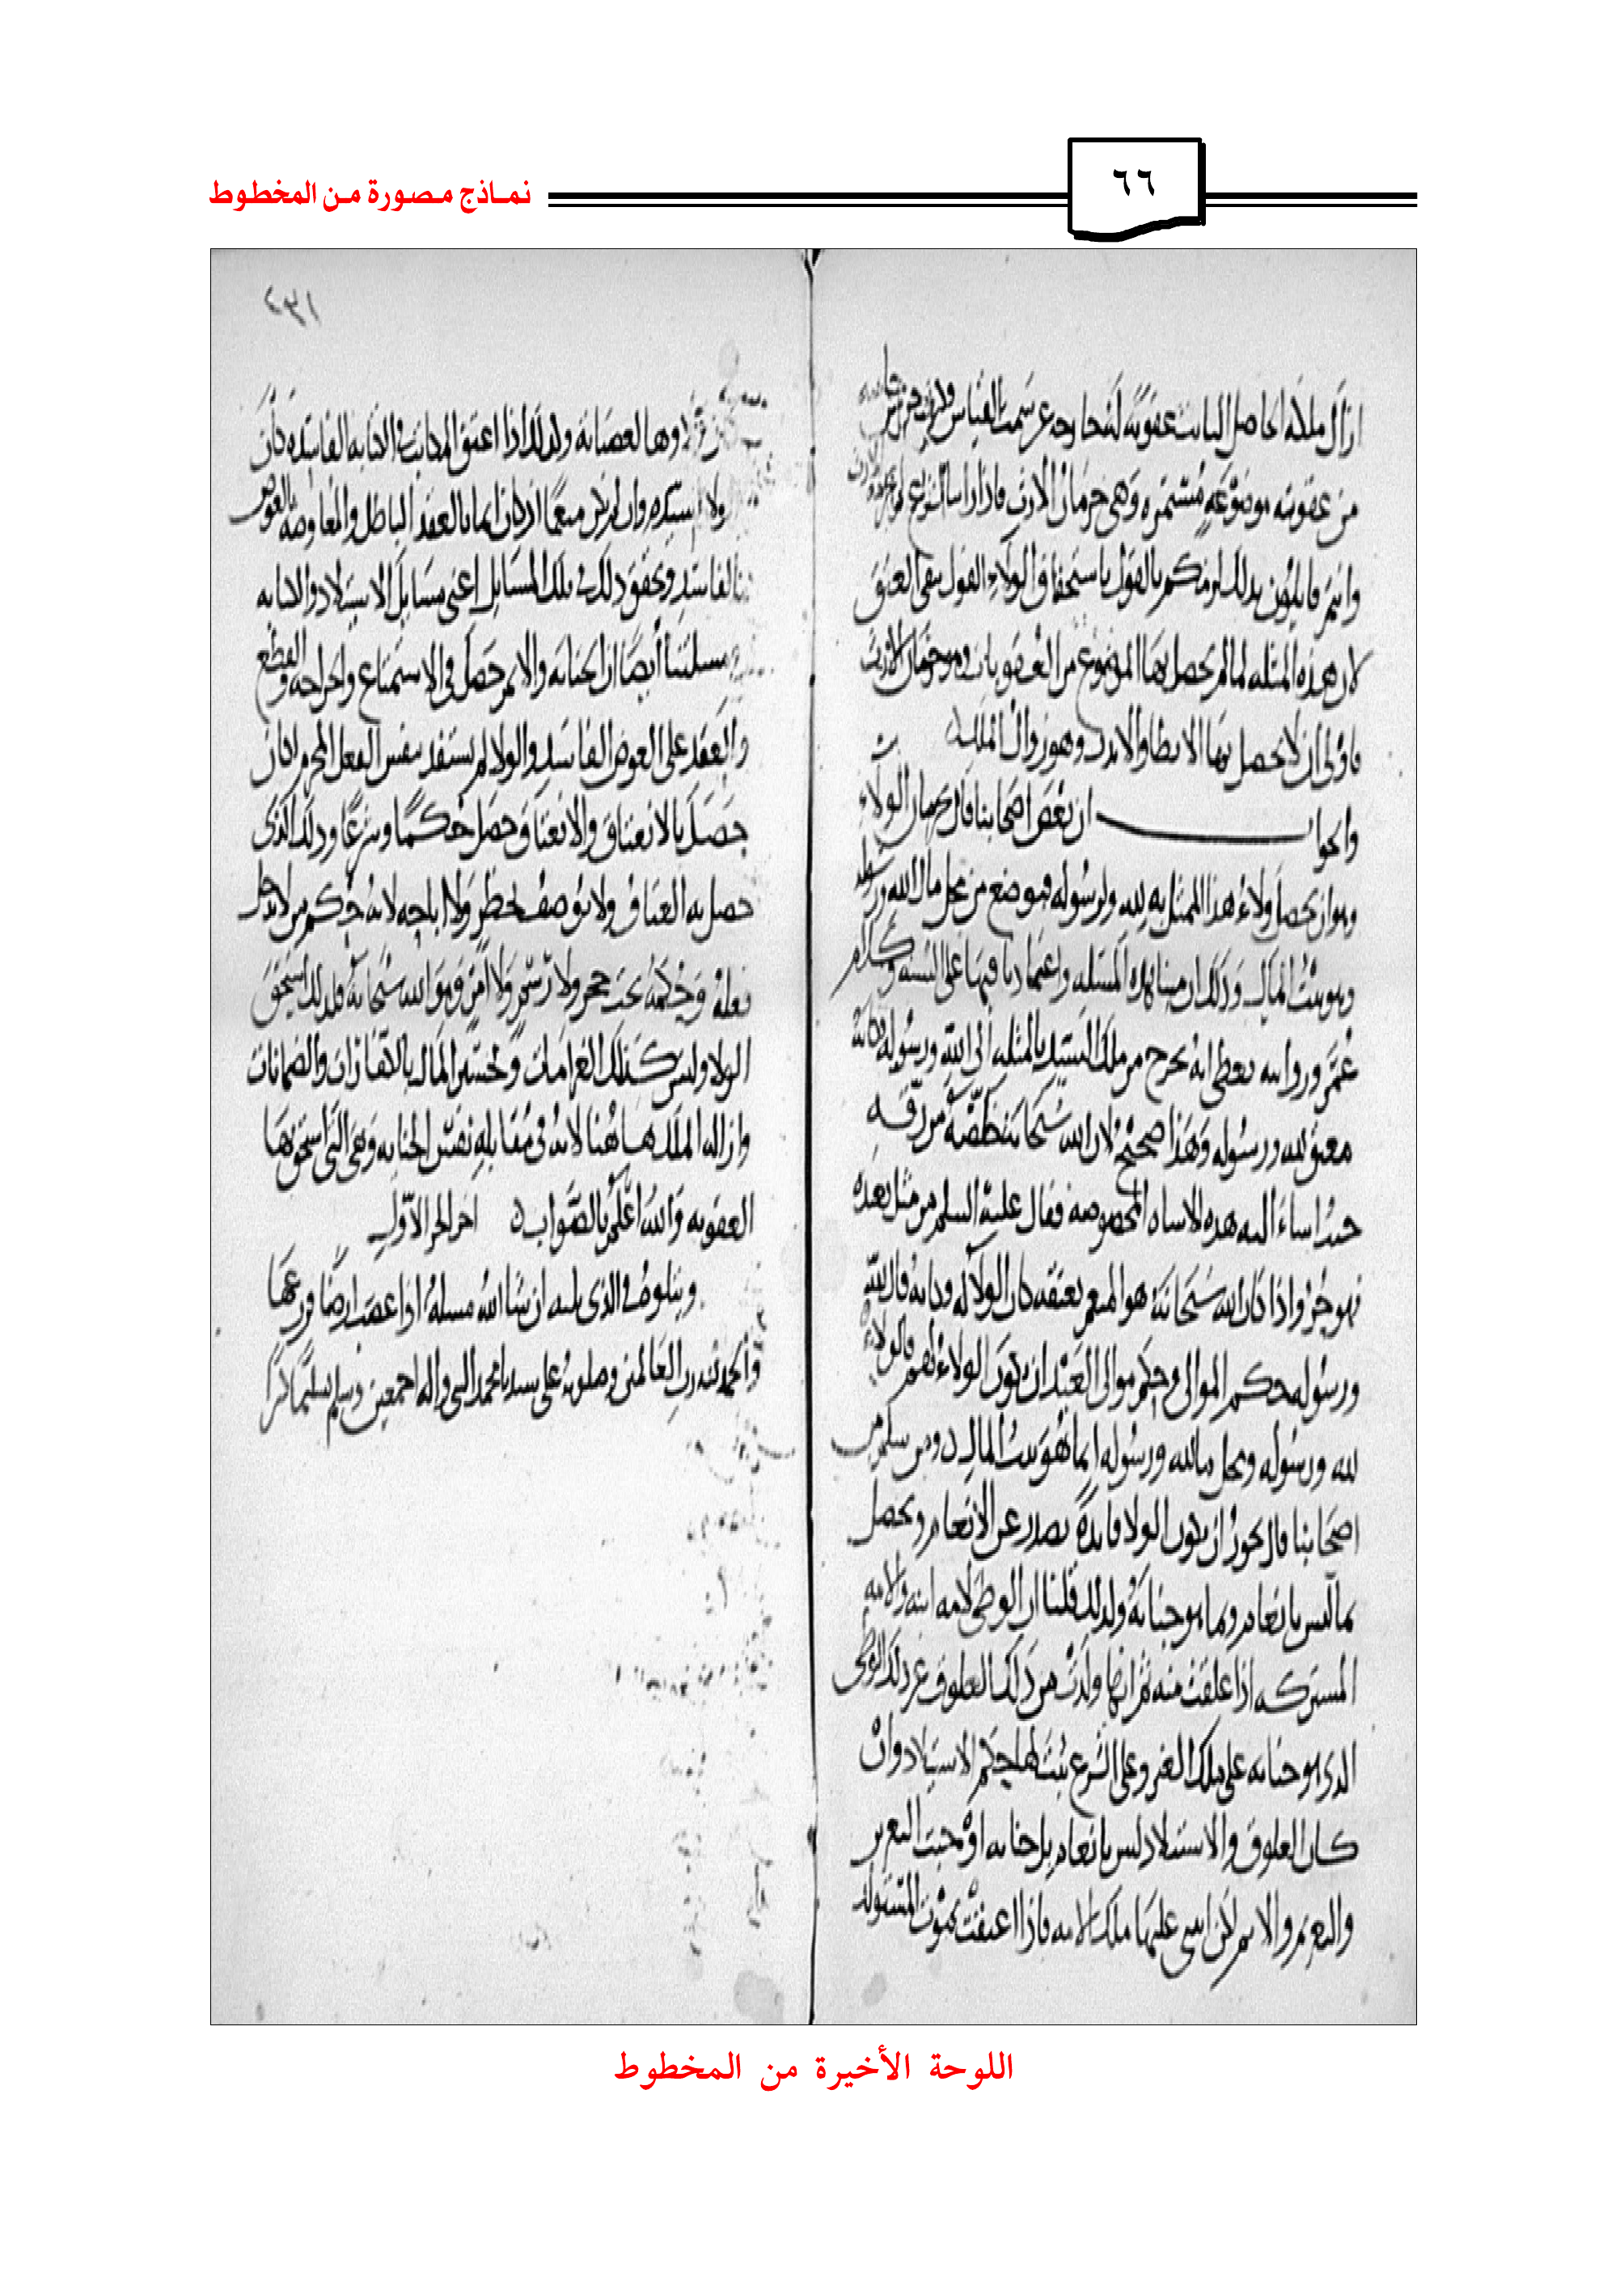 نماذج مصورة من المخطوط
٦٦
ازال ملكه الحاصل الثابت عقوبة له
من عقوبته موضوعة مستمرة وهي حرمان الارث فاذا
وانتم قايلون بذلك لزمكم بالقول باستحقاق الولاء القول بنفي العتق
لان هذه المثلة لما لم يحصل بها الموضوع من العقوبات وهو حرمان الارث
فاولى ان لا يحصل بها وهو زوال الملك
والجواب ان بعض اصحابنا قال بحرمان الولاء
وهو ان يحصل ولاء هذا الممثل به لله ولرسوله فيوضع في محل مال الله ورسوله
وهو بيت المال وذلك ان هذه المسلة واعتمادنا فيها على السنة وكلام
عمر وروايته يعطي انه يخرج من ملك السيد بالمثلة الى الله ورسوله فكانه
معتق لله ورسوله وهذا صحيح لان الله سبحانه من رقه
حيث اساء اليه هذه الاساه المخصوصة فقال عليه السلم من مثل بعبده
فهو حر واذا كان الله سبحانه هو المنعم بعتقه كان الولاء له وكانه قال لله
ورسوله بحكم الموالي وحكم موالي العبد ان يكون الولاء لهم فالولاء
لله ورسوله ومحل مال الله ورسوله انما هو بيت المال ومن سلم من
اصحابنا قال يجوز ان يكون الولا فايدة يصدر عن الانعام ويحصل
بما ليس بانعام وما هو جناية ولذلك قلنا ان الوطى لامة ابنه والامة
المشتركة اذا علقت منه ثم انها ولدت من ذلك العلوق عن ذلك الوطى
الذي هو جناية على ملك الغير وعلى الشرع يثبت لها حكم الاستيلاد وان
كان العلوق والاستيلاد ليس بانعام بل جناية اوجبت التعزير
والتحريم والاثم لكن ملك الامة فاذا اعتقت بموت المستولد
١٢٤
ولذلك اذا اعتق المكاتب في الكتابة الفاسدة كان
ولاه لسيده وان لم يكن منعما اذ كان بالعقد الباطل والمعاوضة بالعوض
الفاسد وتحقق ذلك في تلك المسايل اعني مسايل الاستيلاد والكتابة
ومسلتنا ايضا ان الجناية والاثم حصل في الاستمتاع والجراحة والقطع
والعقد على العوض الفاسد والولا لم يستفد بنفس الفعل المحرم لكن
حصل بالانعتاق والانعتاق حصل حكما وشرعا وذلك الذي
حصل به العتاق ولا يوصف بحظر ولا اباحة لانه حكم من لا يدخل
فعله وحكمه تحت حجر ولا رسم ولا امر وهو الله سبحانه فلذلك استحق
الولا وليس كذلك الغرامات وتخسير المال بالكفارات والضمانات
وازالة الملك هاهنا لانه في مقابلة نفس الجناية وهي التي استحق بها
العقوبة والله اعلم بالصواب اخر الجز الاول
ويتلوه في الذي يليه ان شا الله مسلة اذا غصب ارضا وزرعها
والحمد لله رب العالمين وصلوته على سيدنا محمد النبي واله اجمعين وسلم تسليما كثيرا
اللوحة الأخيرة من المخطوط